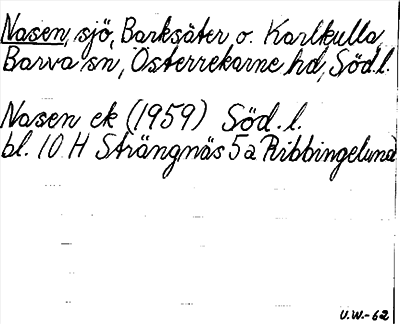 Nasen, sjö, Barksäter o. Karlkulla,
Barva sn, Österrekarne hd, Söd.l.
Nasen ek (1959) Söd.l.
bl. 10 H Strängnäs 5a Ribbingelund
U.W.-62